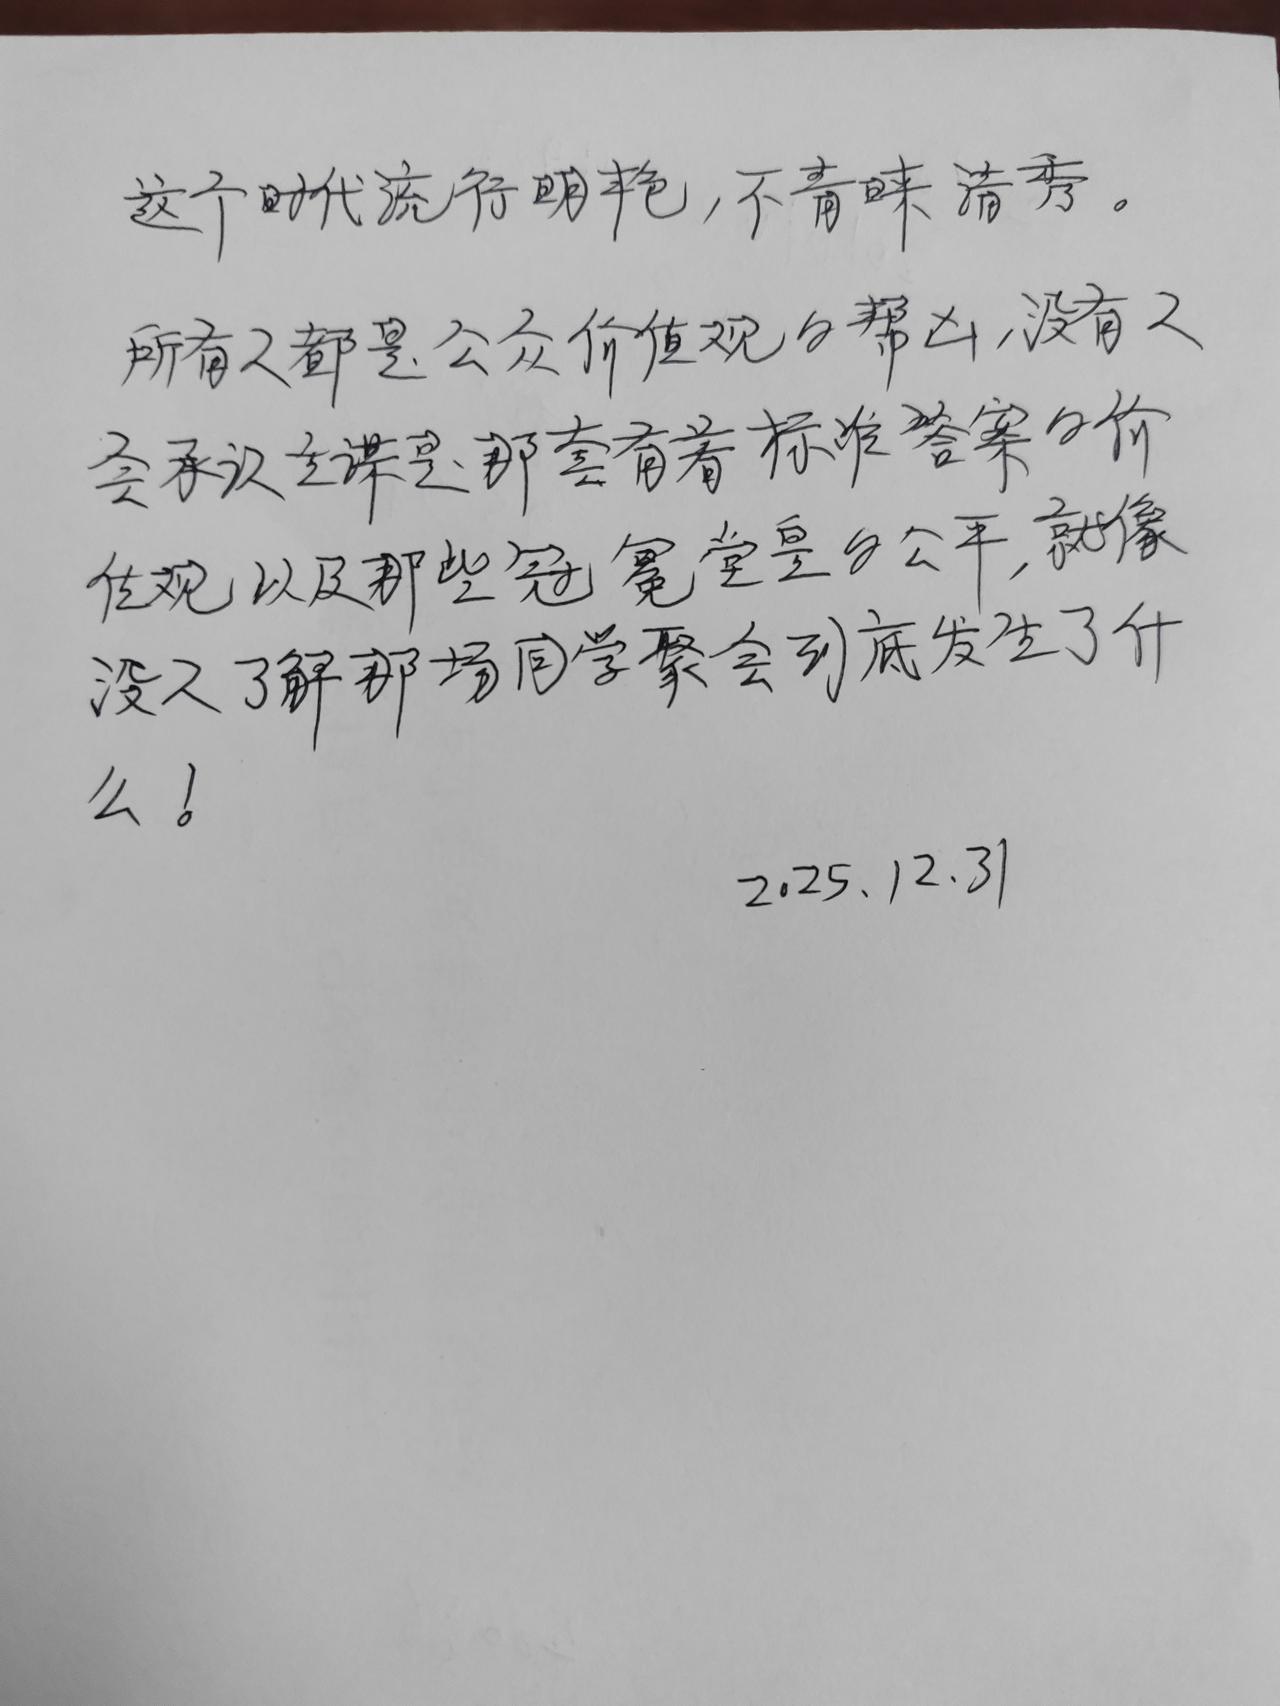 这个时代流行明艳,不青睐清秀。
所有人都是公众价值观的帮凶,没有人
会承认主谋是那套有着标准答案的价
值观以及那些冠冕堂皇的公平,就像
没人了解那场同学聚会到底发生了什
么!
2025.12.31